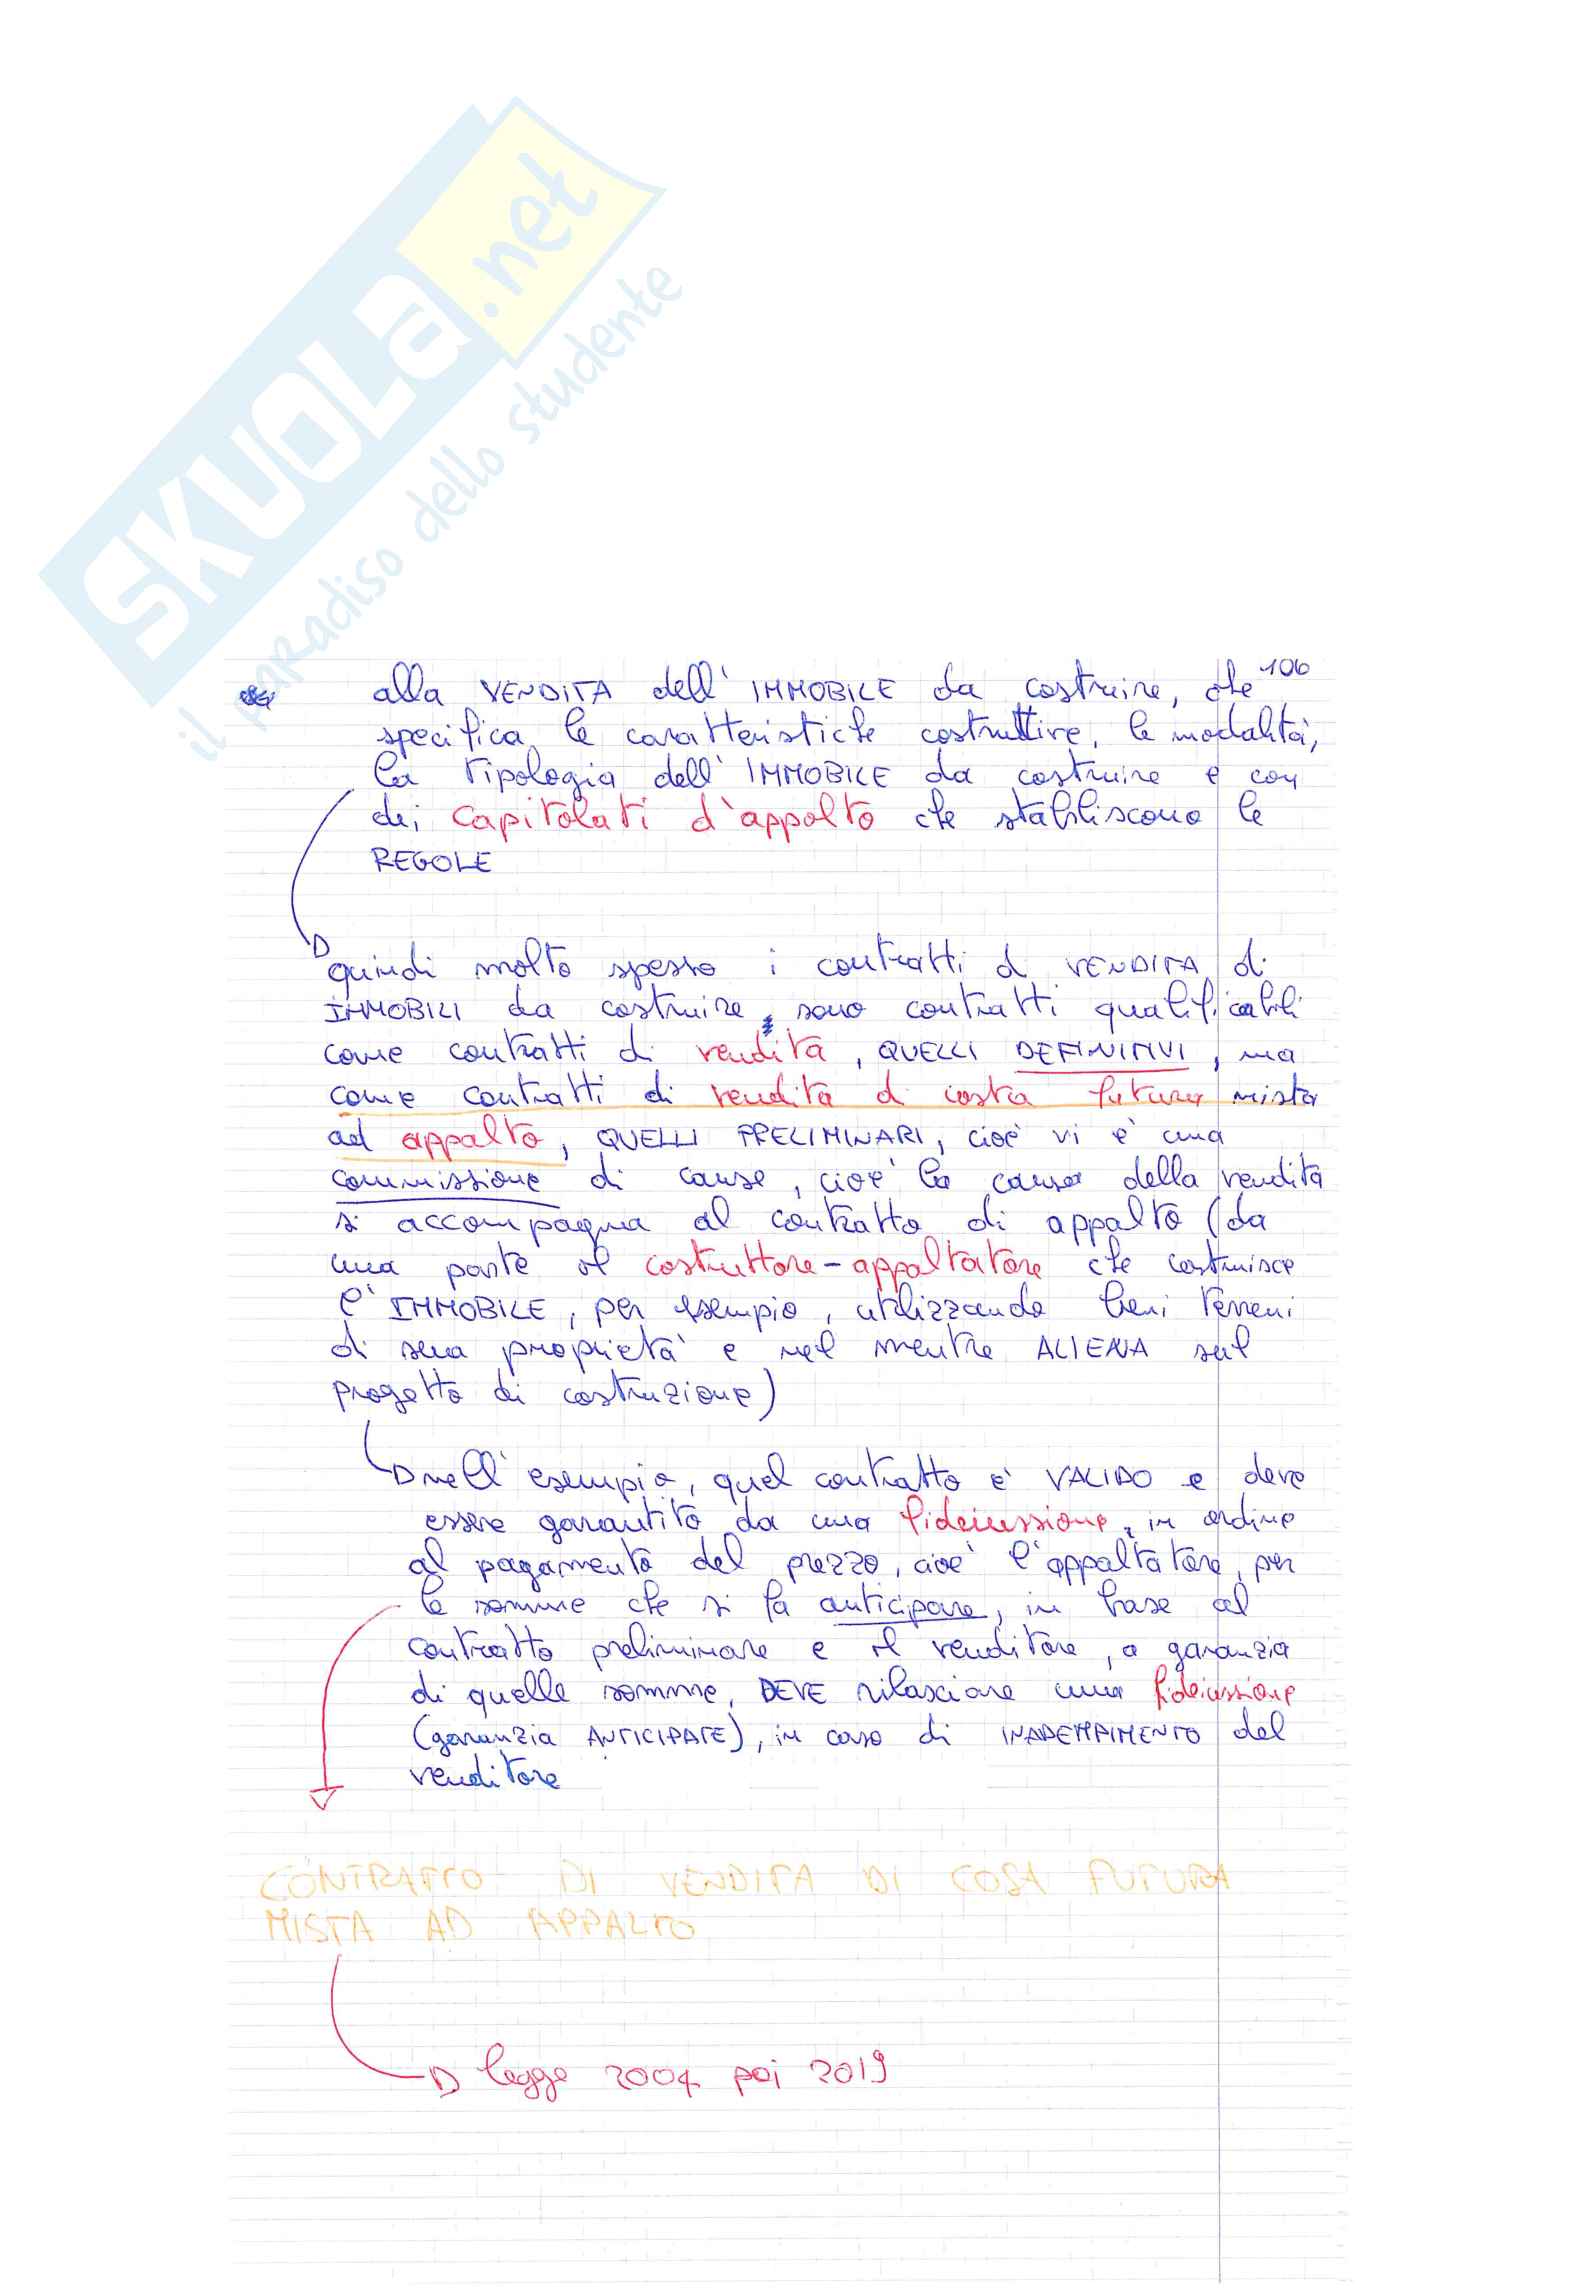 SKUOLa.net
il paradiso dello studente
106
alla VENDITA dell' IMMOBILE da costruire, che
specifica le caratteristiche costruttive, le modalità,
la tipologia dell' IMMOBILE da costruire e con
dei capitolati d'appalto che stabiliscono le
REGOLE
quindi molto spesso i contratti di VENDITA di
IMMOBILI da costruire, sono contratti qualificabili
come contratti di vendita, QUELLI DEFINITIVI, ma
come contratti di vendita di cosa futura mista
ad appalto, QUELLI PRELIMINARI, cioè vi è una
commissione di cause, cioè la causa della vendita
si accompagna al contratto di appalto (da
una parte il costruttore-appaltatore che costruisce
l' IMMOBILE, per esempio, utilizzando beni terreni
di sua proprietà e nel mentre ALIENA sul
progetto di costruzione)
nell' esempio, quel contratto è VALIDO e deve
essere garantito da una fideiussione, in ordine
al pagamento del prezzo, cioè l'appaltatore, per
le somme che si fa anticipare, in base al
contratto preliminare e il venditore, a garanzia
di quelle somme, DEVE rilasciare una fideiussione
(garanzia ANTICIPATE), in caso di INADEMPIMENTO del
venditore
CONTRATTO DI VENDITA DI COSA FUTURA
MISTA AD APPALTO
legge 2004 poi 2019